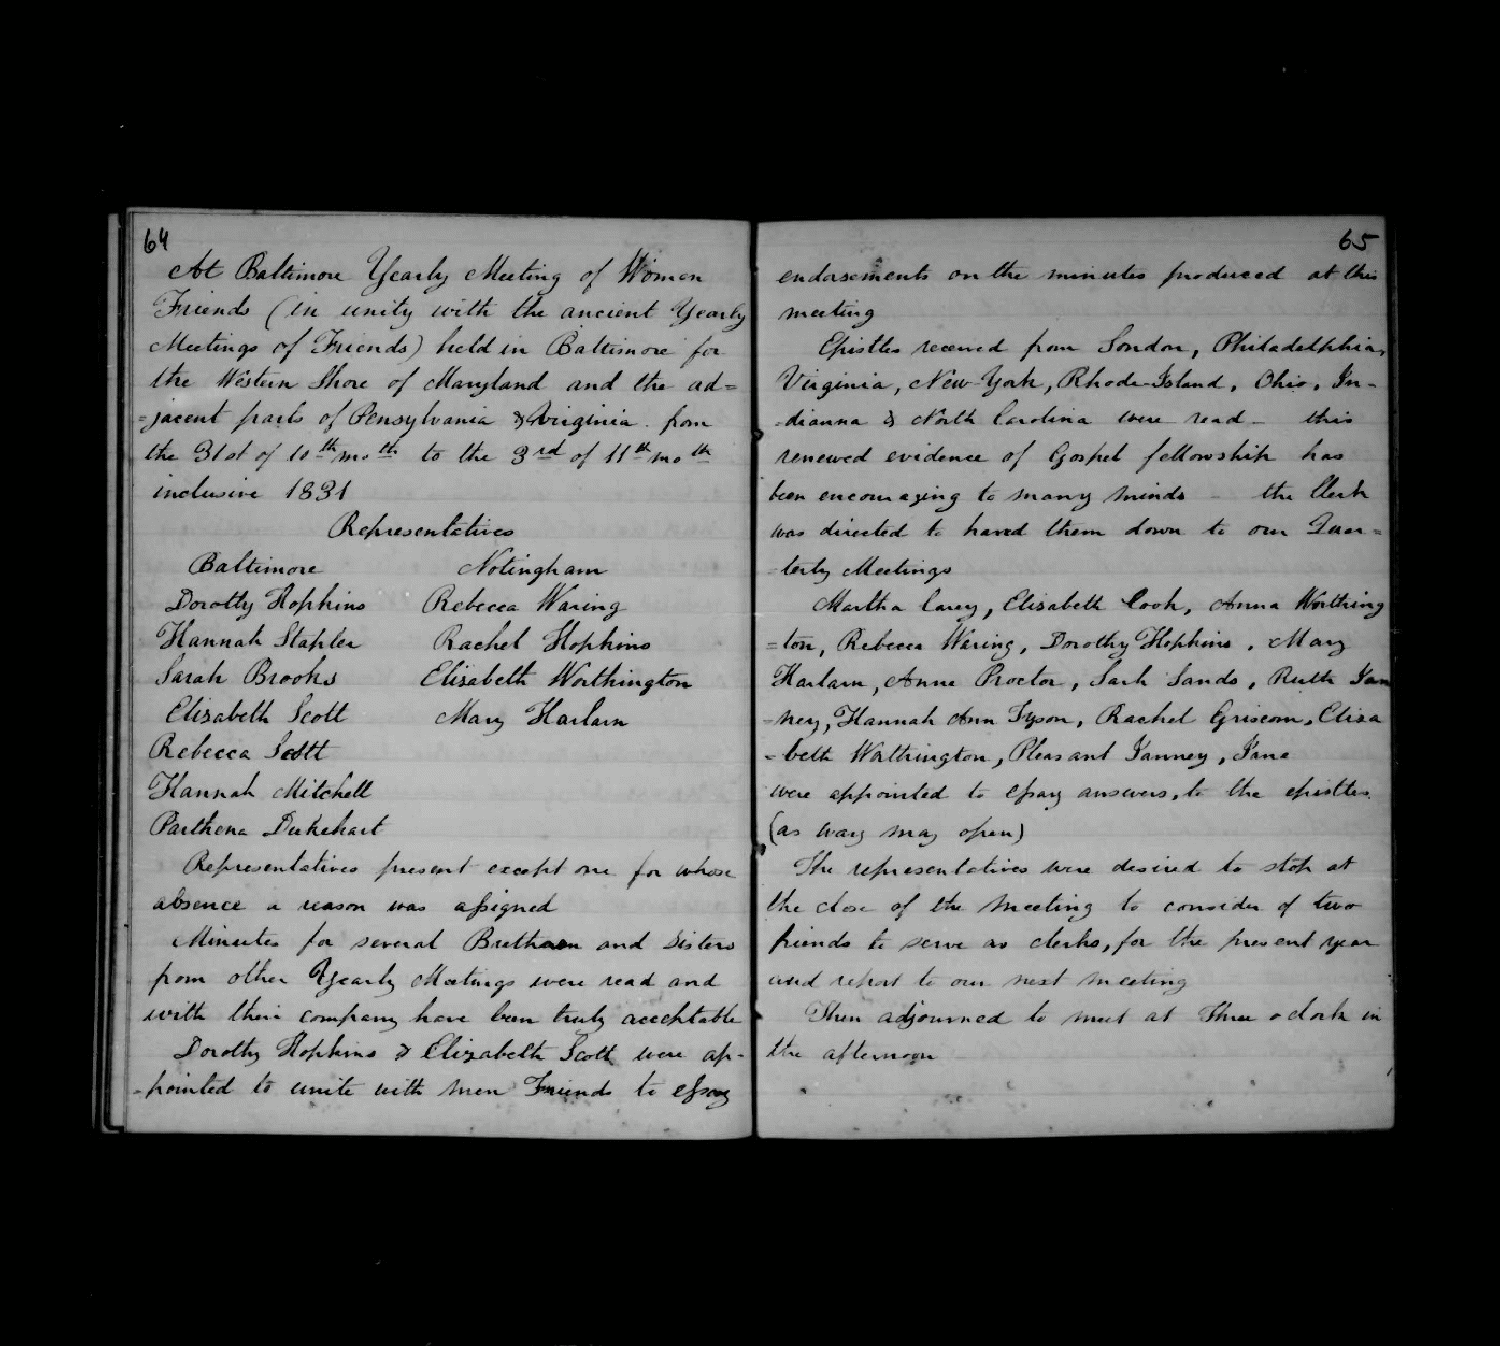 64
At Baltimore Yearly Meeting of Women
Friends (in unity with the ancient Yearly
Meetings of Friends) held in Baltimore for
the Western Shore of Maryland and the ad=
=jacent parts of Pensylvania & Virginia. from
the 31st of 10th mo th to the 3rd of 11th mo th
inclusive 1831
Representatives
Baltimore Notingham
Dorothy Hopkins Rebecca Waring
Hannah Stabler Rachel Hopkins
Sarah Brooks Elisabeth Worthington
Elisabeth Scott Mary Harlam
Rebecca Scott
Hannah Mitchell
Parthena Dukehart
Representatives present except one for whose
absence a reason was assigned
Minutes for several Brethren and Sisters
from other Yearly Meetings were read and
with their company have been truly acceptable
Dorothy Hopkins & Elizabeth Scott were ap-
-pointed to unite with men Friends to essay
65
endorsements on the minutes produced at this
meeting
Epistles received from London, Philadalphia,
Virginia, New-York, Rhode-Island, Ohio, In-
-dianna & North Carolina were read - this
renewed evidence of Gospel fellowship has
been encouraging to many minds - the Clerk
was directed to hand them down to our Quar=
-terly Meetings
Martha Carey, Elisabeth Cook, Anna Worthing
=ton, Rebecca Waring, Dorothy Hopkins, Mary
Harlam, Anne Proctor, Sarh Sands, Ruth Jan
-ney, Hannah Ann Tyson, Rachel Griscom, Eliza
-beth Wathington, Pleasant Janney, Jane
were appointed to essay answers, to the epistles.
(as way may open)
The representatives were desired to stop at
the close of the meeting to consider of two
friends to serve as clerks, for the present year
and report to our next meeting
Then adjourned to meet at Three oclock in
the afternoon